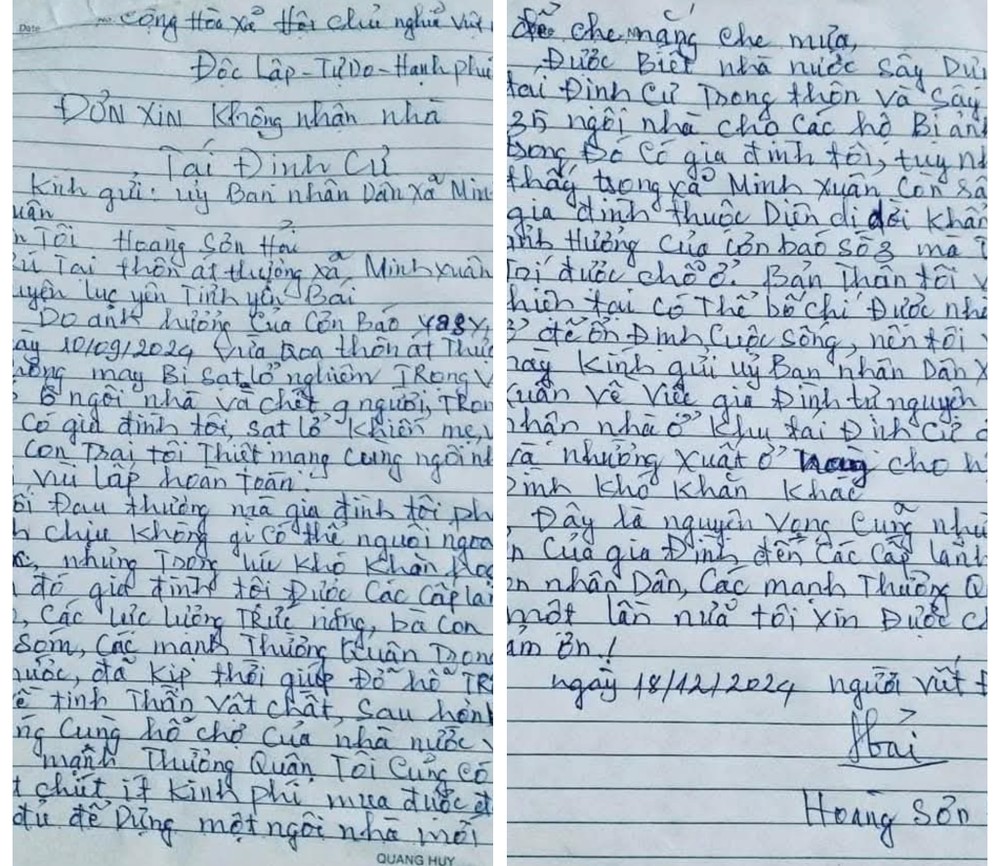 Date
No.
Cộng Hòa Xã Hội Chủ nghĩa Việt
Độc Lập-Tự Do-Hạnh phú
ĐƠN XIN Không nhận nhà
Tái Định Cư
Kính gửi: uỷ Ban nhân Dân Xã Min
uân
n Tôi Hoàng Sơn Hải
Tại thôn át thượng xã, Minh xuân
uyện lục yên Tỉnh yên Bái
Do ảnh hưởng Của Cơn Bão yagy,
ày 10/09/2024 Vừa qoa thôn át Thượ
ông may Bị Sạt lở nghiêm TRọng V
6 ngôi nhà và chết 9 người, TRon
Có gia đình tôi, sạt lở khiến mẹ, v
Con Trai tôi Thiệt mạng Cùng ngôi nh
Vùi lấp hoàn Toàn.
ỗi Đau thương mà gia đình tôi ph
h chịu không gì có thể nguôi ngoa
, nhưng Trong lúc khó khăn
đó gia đình tôi Được Các Cấp lã
, Các lực lượng TRức năng, bà con
Sóm, các mạnh Thường Quân Trong
nước, đã kịp thời giúp Đỡ hỗ TR
ề tinh Thần Vật chất, Sau hơn
ng Cùng hỗ chợ Của nhà nước v
mạnh Thường Quân Tôi Cũng Có
t chút ít kinh phí mua được đ
đủ để Dựng một ngôi nhà mới
QUANG HUY
để che nắng che mưa,
Được Biết nhà nước Sây Dựn
tái Định Cư Trong thôn và Sây
35 ngôi nhà cho Các hộ Bị ản
trong Đó Có gia đình tôi, tuy nh
thấy trong xã Minh Xuân Còn
gia đình thuộc Diện di dời khẩn
ảnh Hưởng Của Cơn bão số 3 mà
trí được chỗ ở. Bản Thân tôi v
hiện tại có Thể bố chí Được nh
ở để ổn Định Cuộc sống, nên tôi
này Kính gửi uỷ Ban nhân Dân X
xuân về Việc gia Đình tự nguyện
nhận nhà ở khu tái Định Cư
và nhường Xuất ở cho h
Đình khó khăn khác
Đây là nguyện Vọng Cũng như
n Của gia Đình đến Các Cấp lãnh
n nhân Dân, Các mạnh Thường Q
một lần nữa tôi Xin Được C
ảm ơn!
ngày 18/12/2024 người viết Đ
Hải
Hoàng Sơn